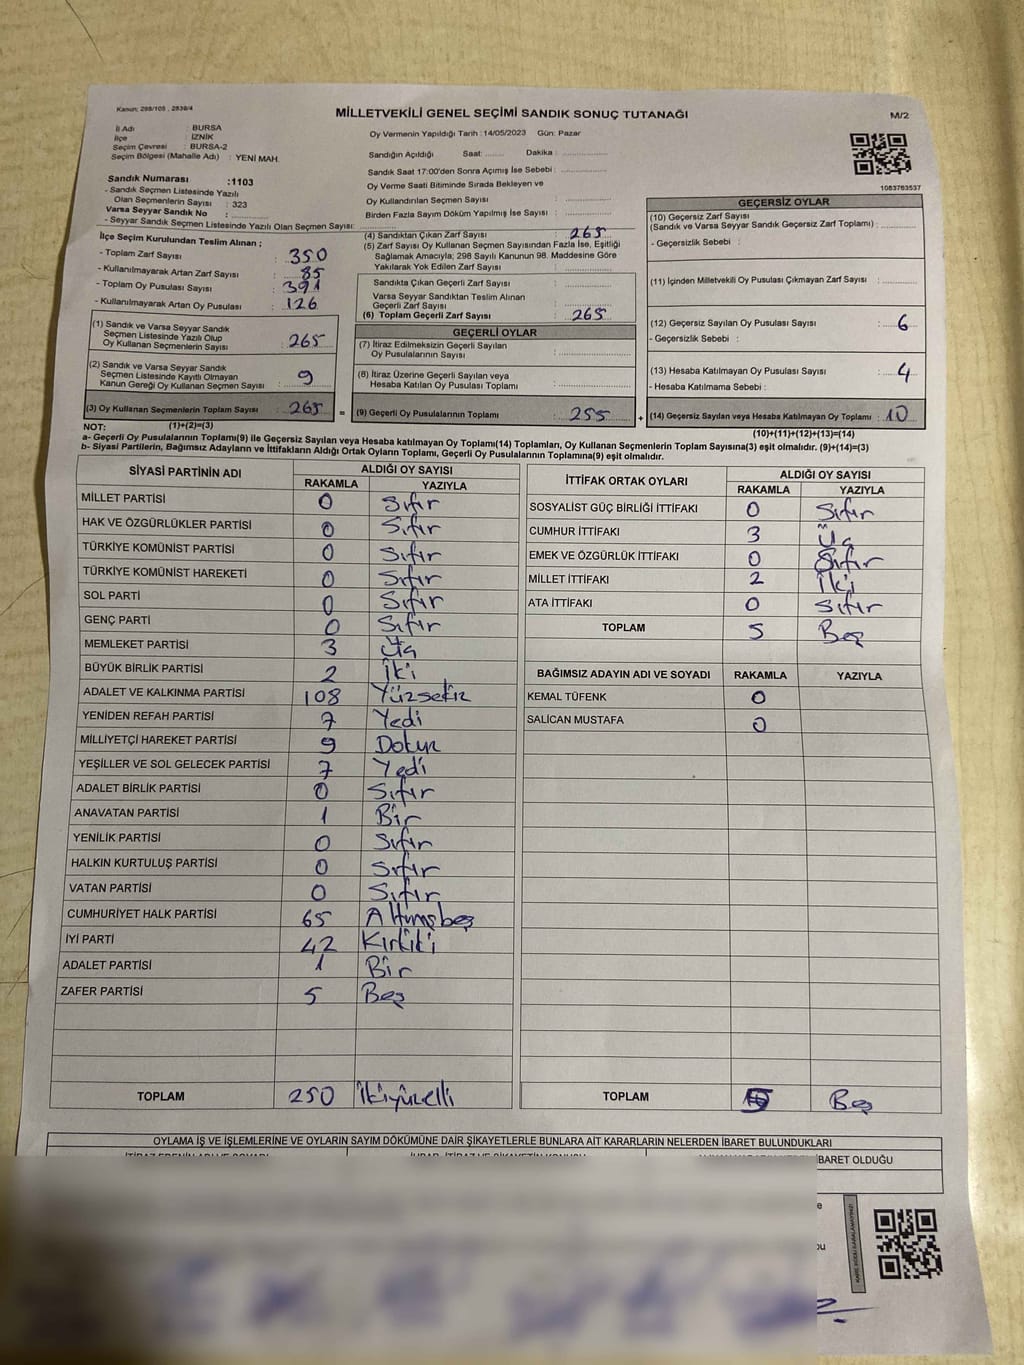 Kanun: 298/105 , 2839/4
MİLLETVEKİLİ GENEL SEÇİMİ SANDIK SONUÇ TUTANAĞI
M/2
İl Adı : BURSA
İlçe : İZNİK
Seçim Çevresi : BURSA-2
Seçim Bölgesi (Mahalle Adı) : YENİ MAH.
Sandık Numarası :1103
- Sandık Seçmen Listesinde Yazılı
Olan Seçmenlerin Sayısı : 323
Varsa Seyyar Sandık No : ..............
- Seyyar Sandık Seçmen Listesinde Yazılı Olan Seçmen Sayısı: ..............
Oy Vermenin Yapıldığı Tarih : 14/05/2023 Gün: Pazar
Sandığın Açıldığı Saat: ....... Dakika : ..............
Sandık Saat 17:00'den Sonra Açımış İse Sebebi : ..............
Oy Verme Saati Bitiminde Sırada Bekleyen ve
Oy Kullandırılan Seçmen Sayısı : ..............
Birden Fazla Sayım Döküm Yapılmış İse Sayısı : ..............
1083763537
İlçe Seçim Kurulundan Teslim Alınan ;
- Toplam Zarf Sayısı : 350
- Kullanılmayarak Artan Zarf Sayısı : 85
- Toplam Oy Pusulası Sayısı : 391
- Kullanılmayarak Artan Oy Pusulası : 126
(1) Sandık ve Varsa Seyyar Sandık
Seçmen Listesinde Yazılı Olup
Oy Kullanan Seçmenlerin Sayısı : 265
(2) Sandık ve Varsa Seyyar Sandık
Seçmen Listesinde Kayıtlı Olmayan
Kanun Gereği Oy Kullanan Seçmen Sayısı : 9
(3) Oy Kullanan Seçmenlerin Toplam Sayısı : 265 =
(4) Sandıktan Çıkan Zarf Sayısı : 265
(5) Zarf Sayısı Oy Kullanan Seçmen Sayısından Fazla İse, Eşitliği
Sağlamak Amacıyla; 298 Sayılı Kanunun 98. Maddesine Göre
Yakılarak Yok Edilen Zarf Sayısı : ..............
Sandıkta Çıkan Geçerli Zarf Sayısı : ..............
Varsa Seyyar Sandıktan Teslim Alınan
Geçerli Zarf Sayısı : ..............
(6) Toplam Geçerli Zarf Sayısı : 265
GEÇERLİ OYLAR
(7) İtiraz Edilmeksizin Geçerli Sayılan
Oy Pusulalarının Sayısı : ..............
(8) İtiraz Üzerine Geçerli Sayılan veya
Hesaba Katılan Oy Pusulası Toplamı : ..............
(9) Geçerli Oy Pusulalarının Toplamı : 255 +
GEÇERSİZ OYLAR
(10) Geçersiz Zarf Sayısı
(Sandık ve Varsa Seyyar Sandık Geçersiz Zarf Toplamı) : ..............
- Geçersizlik Sebebi :
(11) İçinden Milletvekili Oy Pusulası Çıkmayan Zarf Sayısı : ..............
(12) Geçersiz Sayılan Oy Pusulası Sayısı : 6
- Geçersizlik Sebebi :
(13) Hesaba Katılmayan Oy Pusulası Sayısı : 4
- Hesaba Katılmama Sebebi :
(14) Geçersiz Sayılan veya Hesaba Katılmayan Oy Toplamı : 10
NOT: (1)+(2)=(3)
(10)+(11)+(12)+(13)=(14)
a- Geçerli Oy Pusulalarının Toplamı(9) ile Geçersiz Sayılan veya Hesaba katılmayan Oy Toplamı(14) Toplamları, Oy Kullanan Seçmenlerin Toplam Sayısına(3) eşit olmalıdır. (9)+(14)=(3)
b- Siyasi Partilerin, Bağımsız Adayların ve İttifakların Aldığı Ortak Oyların Toplamı, Geçerli Oy Pusulalarının Toplamına(9) eşit olmalıdır.
SİYASİ PARTİNİN ADI ALDIĞI OY SAYISI
RAKAMLA YAZIYLA
MİLLET PARTİSİ 0 Sıfır
HAK VE ÖZGÜRLÜKLER PARTİSİ 0 Sıfır
TÜRKİYE KOMÜNİST PARTİSİ 0 Sıfır
TÜRKİYE KOMÜNİST HAREKETİ 0 Sıfır
SOL PARTİ 0 Sıfır
GENÇ PARTİ 0 Sıfır
MEMLEKET PARTİSİ 3 Üç
BÜYÜK BİRLİK PARTİSİ 2 İki
ADALET VE KALKINMA PARTİSİ 108 Yüzsekiz
YENİDEN REFAH PARTİSİ 7 Yedi
MİLLİYETÇİ HAREKET PARTİSİ 9 Dokuz
YEŞİLLER VE SOL GELECEK PARTİSİ 7 Yedi
ADALET BİRLİK PARTİSİ 0 Sıfır
ANAVATAN PARTİSİ 1 Bir
YENİLİK PARTİSİ 0 Sıfır
HALKIN KURTULUŞ PARTİSİ 0 Sıfır
VATAN PARTİSİ 0 Sıfır
CUMHURİYET HALK PARTİSİ 65 Altmışbeş
İYİ PARTİ 42 Kırkiki
ADALET PARTİSİ 1 Bir
ZAFER PARTİSİ 5 Beş
TOPLAM 250 İkiyüzelli
İTTİFAK ORTAK OYLARI ALDIĞI OY SAYISI
RAKAMLA YAZIYLA
SOSYALİST GÜÇ BİRLİĞİ İTTİFAKI 0 Sıfır
CUMHUR İTTİFAKI 3 Üç
EMEK VE ÖZGÜRLÜK İTTİFAKI 0 Sıfır
MİLLET İTTİFAKI 2 İki
ATA İTTİFAKI 0 Sıfır
TOPLAM 5 Beş
BAĞIMSIZ ADAYIN ADI VE SOYADI RAKAMLA YAZIYLA
KEMAL TÜFENK 0
SALİCAN MUSTAFA 0
TOPLAM 5 Beş
OYLAMA İŞ VE İŞLEMLERİNE VE OYLARIN SAYIM DÖKÜMÜNE DAİR ŞİKAYETLERLE BUNLARA AİT KARARLARIN NELERDEN İBARET BULUNDUKLARI
İBARET OLDUĞU